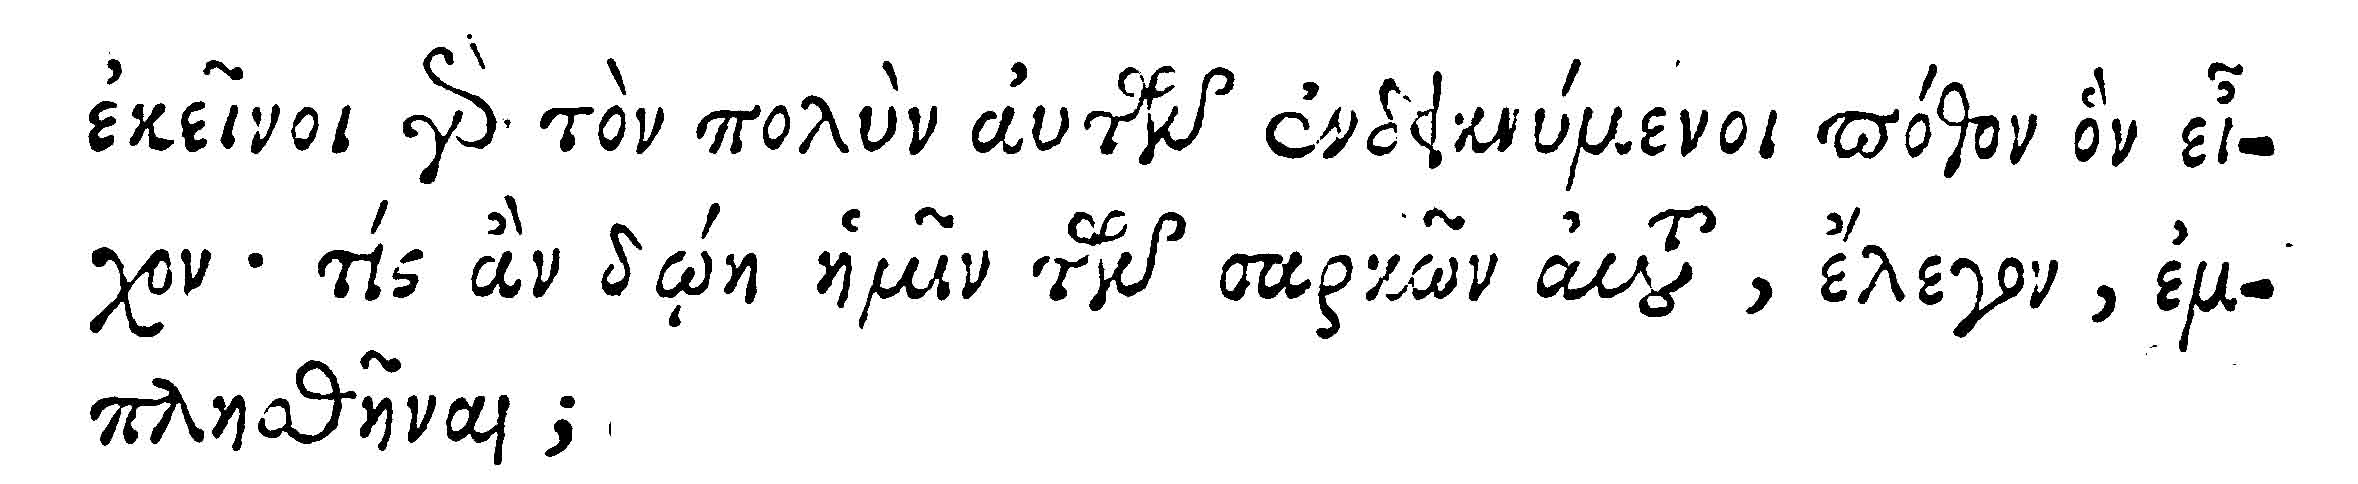 ἐκεῖνοι γὰρ τὸν πολὺν αὐτῶν ἐνδεικνύμενοι πόθον ὃν εἶ-
χον· τίς ἂν δῴη ἡμῖν τῶν σαρκῶν αὐτοῦ, ἔλεγον, ἐμ-
πλησθῆναι;